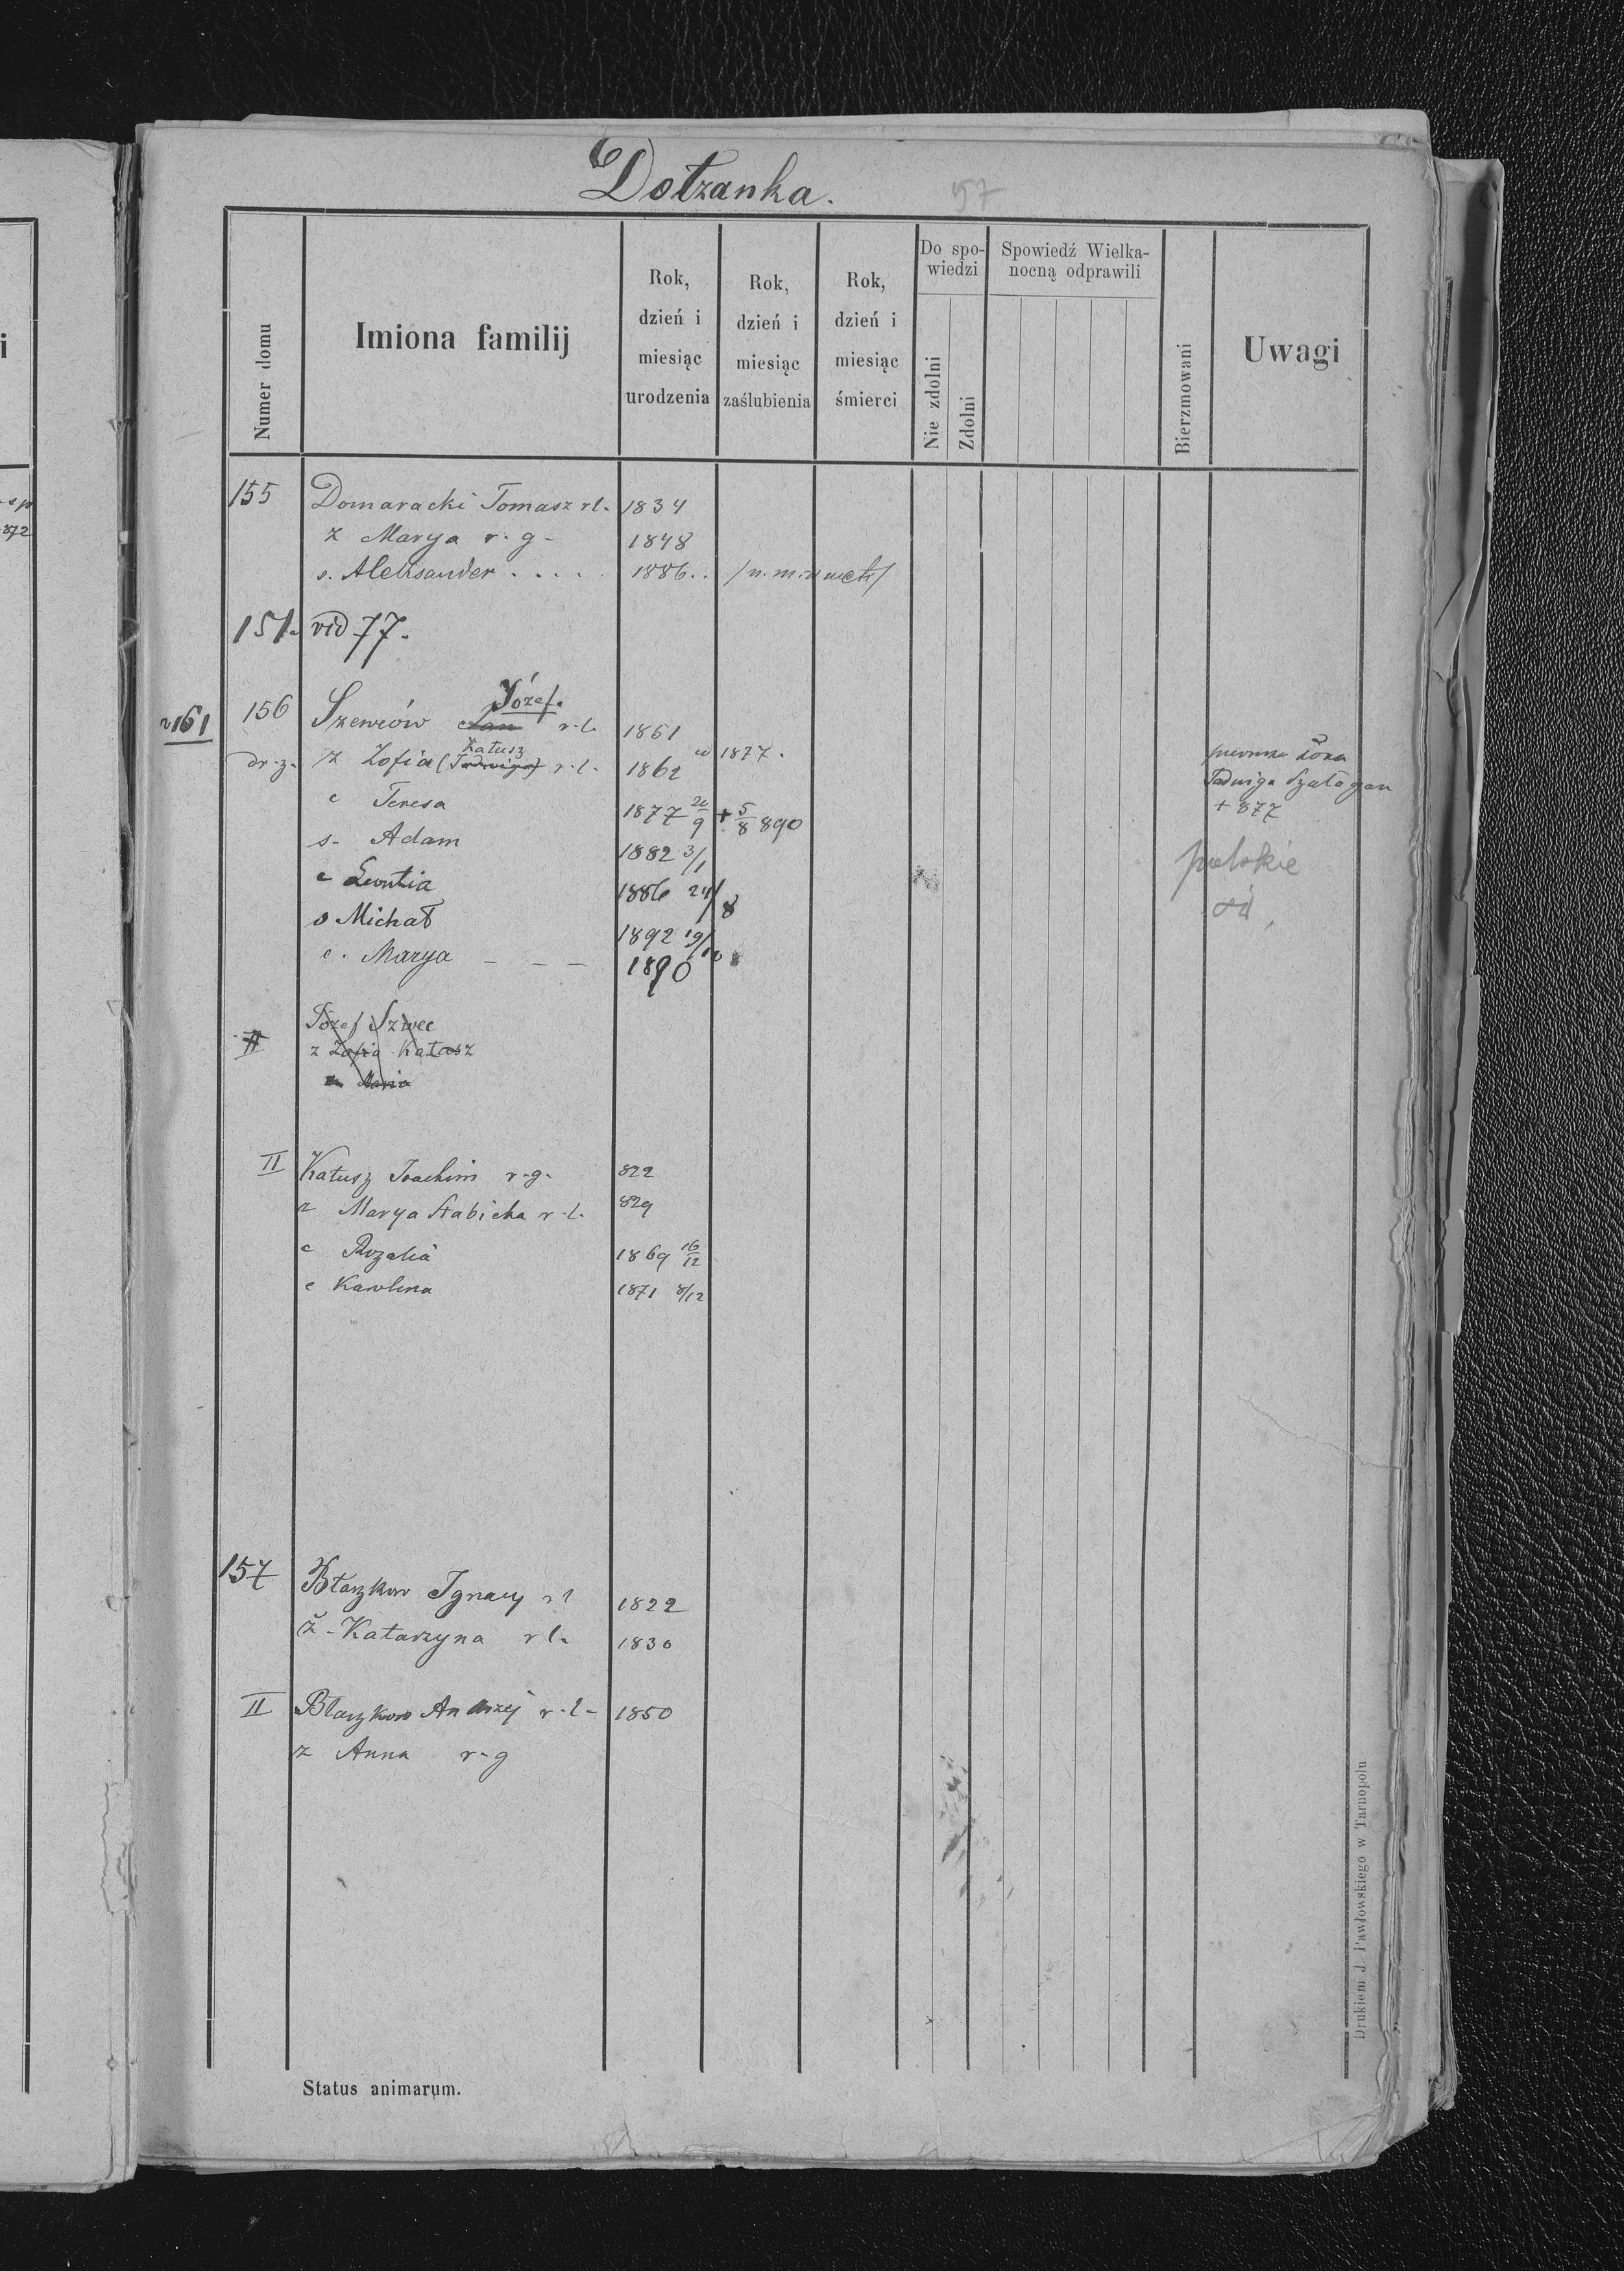 Dołzanka.
57
Numer domu
Imiona familij
Rok, dzień i miesiąc urodzenia
Rok, dzień i miesiąc zaślubienia
Rok, dzień i miesiąc śmierci
Do spo-
wiedzi
Nie zdolni
Zdolni
Spowiedź Wielka-
nocną odprawili
Bierzmowani
Uwagi
155 Domaracki Tomasz rl. 1834
z Marya r. g- 1848
s. Aleksander . . . . 1886..
151. vid 77.
Józef.
161 156 Szewców Jan r.l. 1851
Katusz
dr. z. z Zofia (Jadwiga) r.l. 1862 1877. pierwsza żona
Jadwiga Szatagan
+ 877
c Teresa 1877 20/9 + 5/8 890
s- Adam 1882 3/1
c Leontia 1886 24/8
s Michał 1892 19/10
c. Marya – – – 1890
II Józef Szwec
z Zofia Katusz
Maria
II Katusz Joachim r-g- 822
z Marya Słabicka r-l. 829
c Rozalia 1869 16/12
c Karolina 1871 8/12
157 Błaszkow Ignacy rl 1822
ż-Katarzyna rl. 1830
II Blaszkow Andrzej r-l- 1850
z Anna r-g
Status animarum.
Drukiem J. Pawłowskiego w Tarnopolu
872